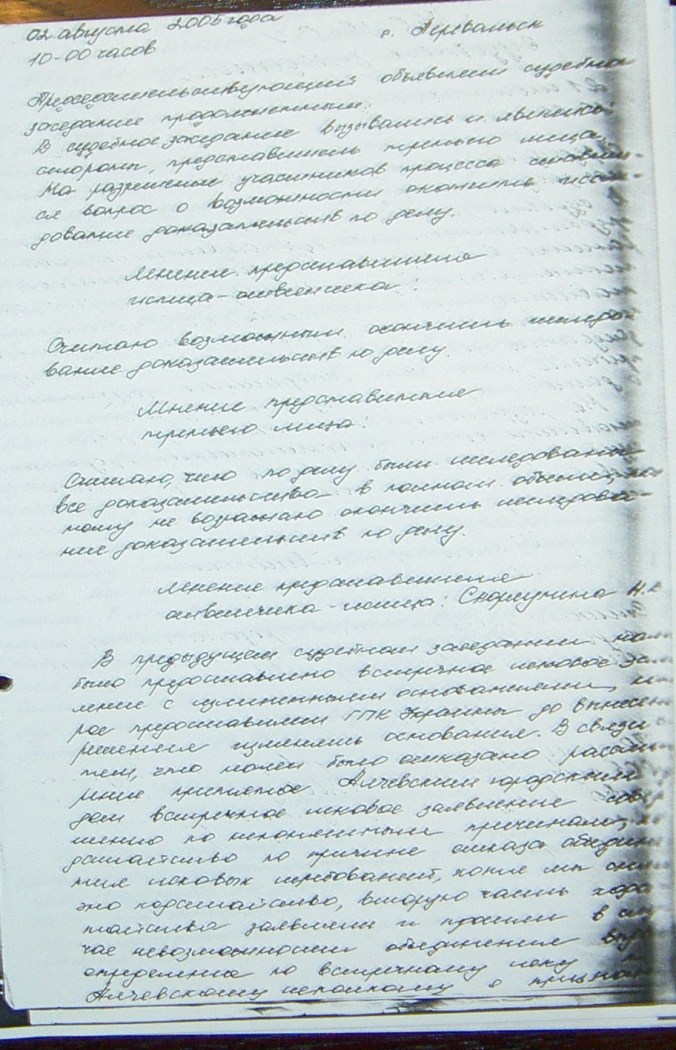 02 августа 2005 года г. Перевальск
10-00 часов
Председательствующий объявляет судебное
заседание продолженным.
В судебное заседание вызывались и явились
стороны, представитель третьего лица.
На разрешение участников процесса
ся вопрос о возможности окончить иссле-
дование доказательств по делу.
Мнение представителя
истца-ответчика:
Считаю возможным окончить исследо
вание доказательств по делу.
Мнение представителя
третьего лица:
Считаю, что по делу были исследованы
все доказательства в полном объеме,
тому не возражаю окончить исследова-
ние доказательств по делу.
Мнение представителя
ответчика-истца: Н.
В предыдущем судебном заседании нами
было предоставлено встречное исковое зая
вление с измененными основаниями,
рое предоставляет ГПК Украины до вынесен
решения изменять основания. В связи с
тем, что нами было отказано рассмо
рение Алчевским городским
дом встречное исковое заявление
шенно по непонятным причинам,
датайство по причине отказа объедине
ния исковых требований, копие мы
это ходатайство, вторую часть хода
тайства заявляли и просили в слу
чае невозможности объединения
определения по встречному иску
Алчевскому исполкому о признан